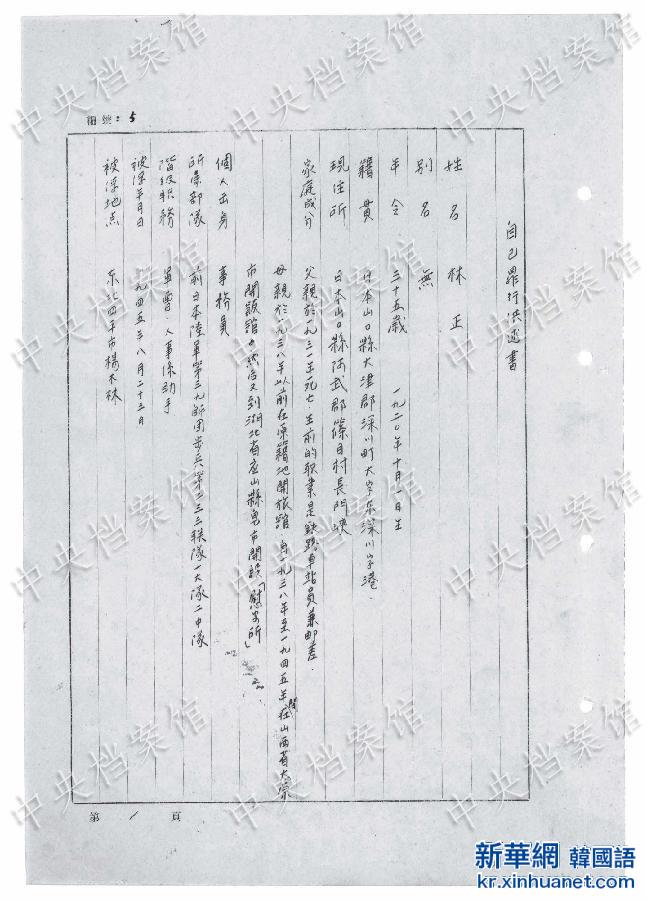 冊號：5
自己罪行供述書
姓名 林正
別名 無
年令 三十五歲 一九二〇年十月一日生
籍貫 日本山口縣大津郡深川町大字东深川字港.
現住所 日本山口縣阿武郡篠目村長門峽
家庭成分 父親於一九三一年死亡 生前的职業是鉄路車站員兼邮差.
母親於一九三八年以前在原籍地開旅館.自一九三八年至一九四五年在山西省大
市開 館 然后又到湖北省应山縣 市開設「慰安所」
個人出身 事務員
所属部隊 前日本陸軍第三九師团步兵第二三三联隊一大隊二中隊
階級职務 軍曹 人事係助手
被俘年月日 一九四五年八月二十三日
被俘地点 东北四平市楊木林
第 1 頁
中央档案馆
中央档案馆
中央档案馆
中央档案馆
中央档案馆
中央档案馆
中央档案馆
中央档案馆
中央档案馆
新華網 韓國語
kr.xinhuanet.com